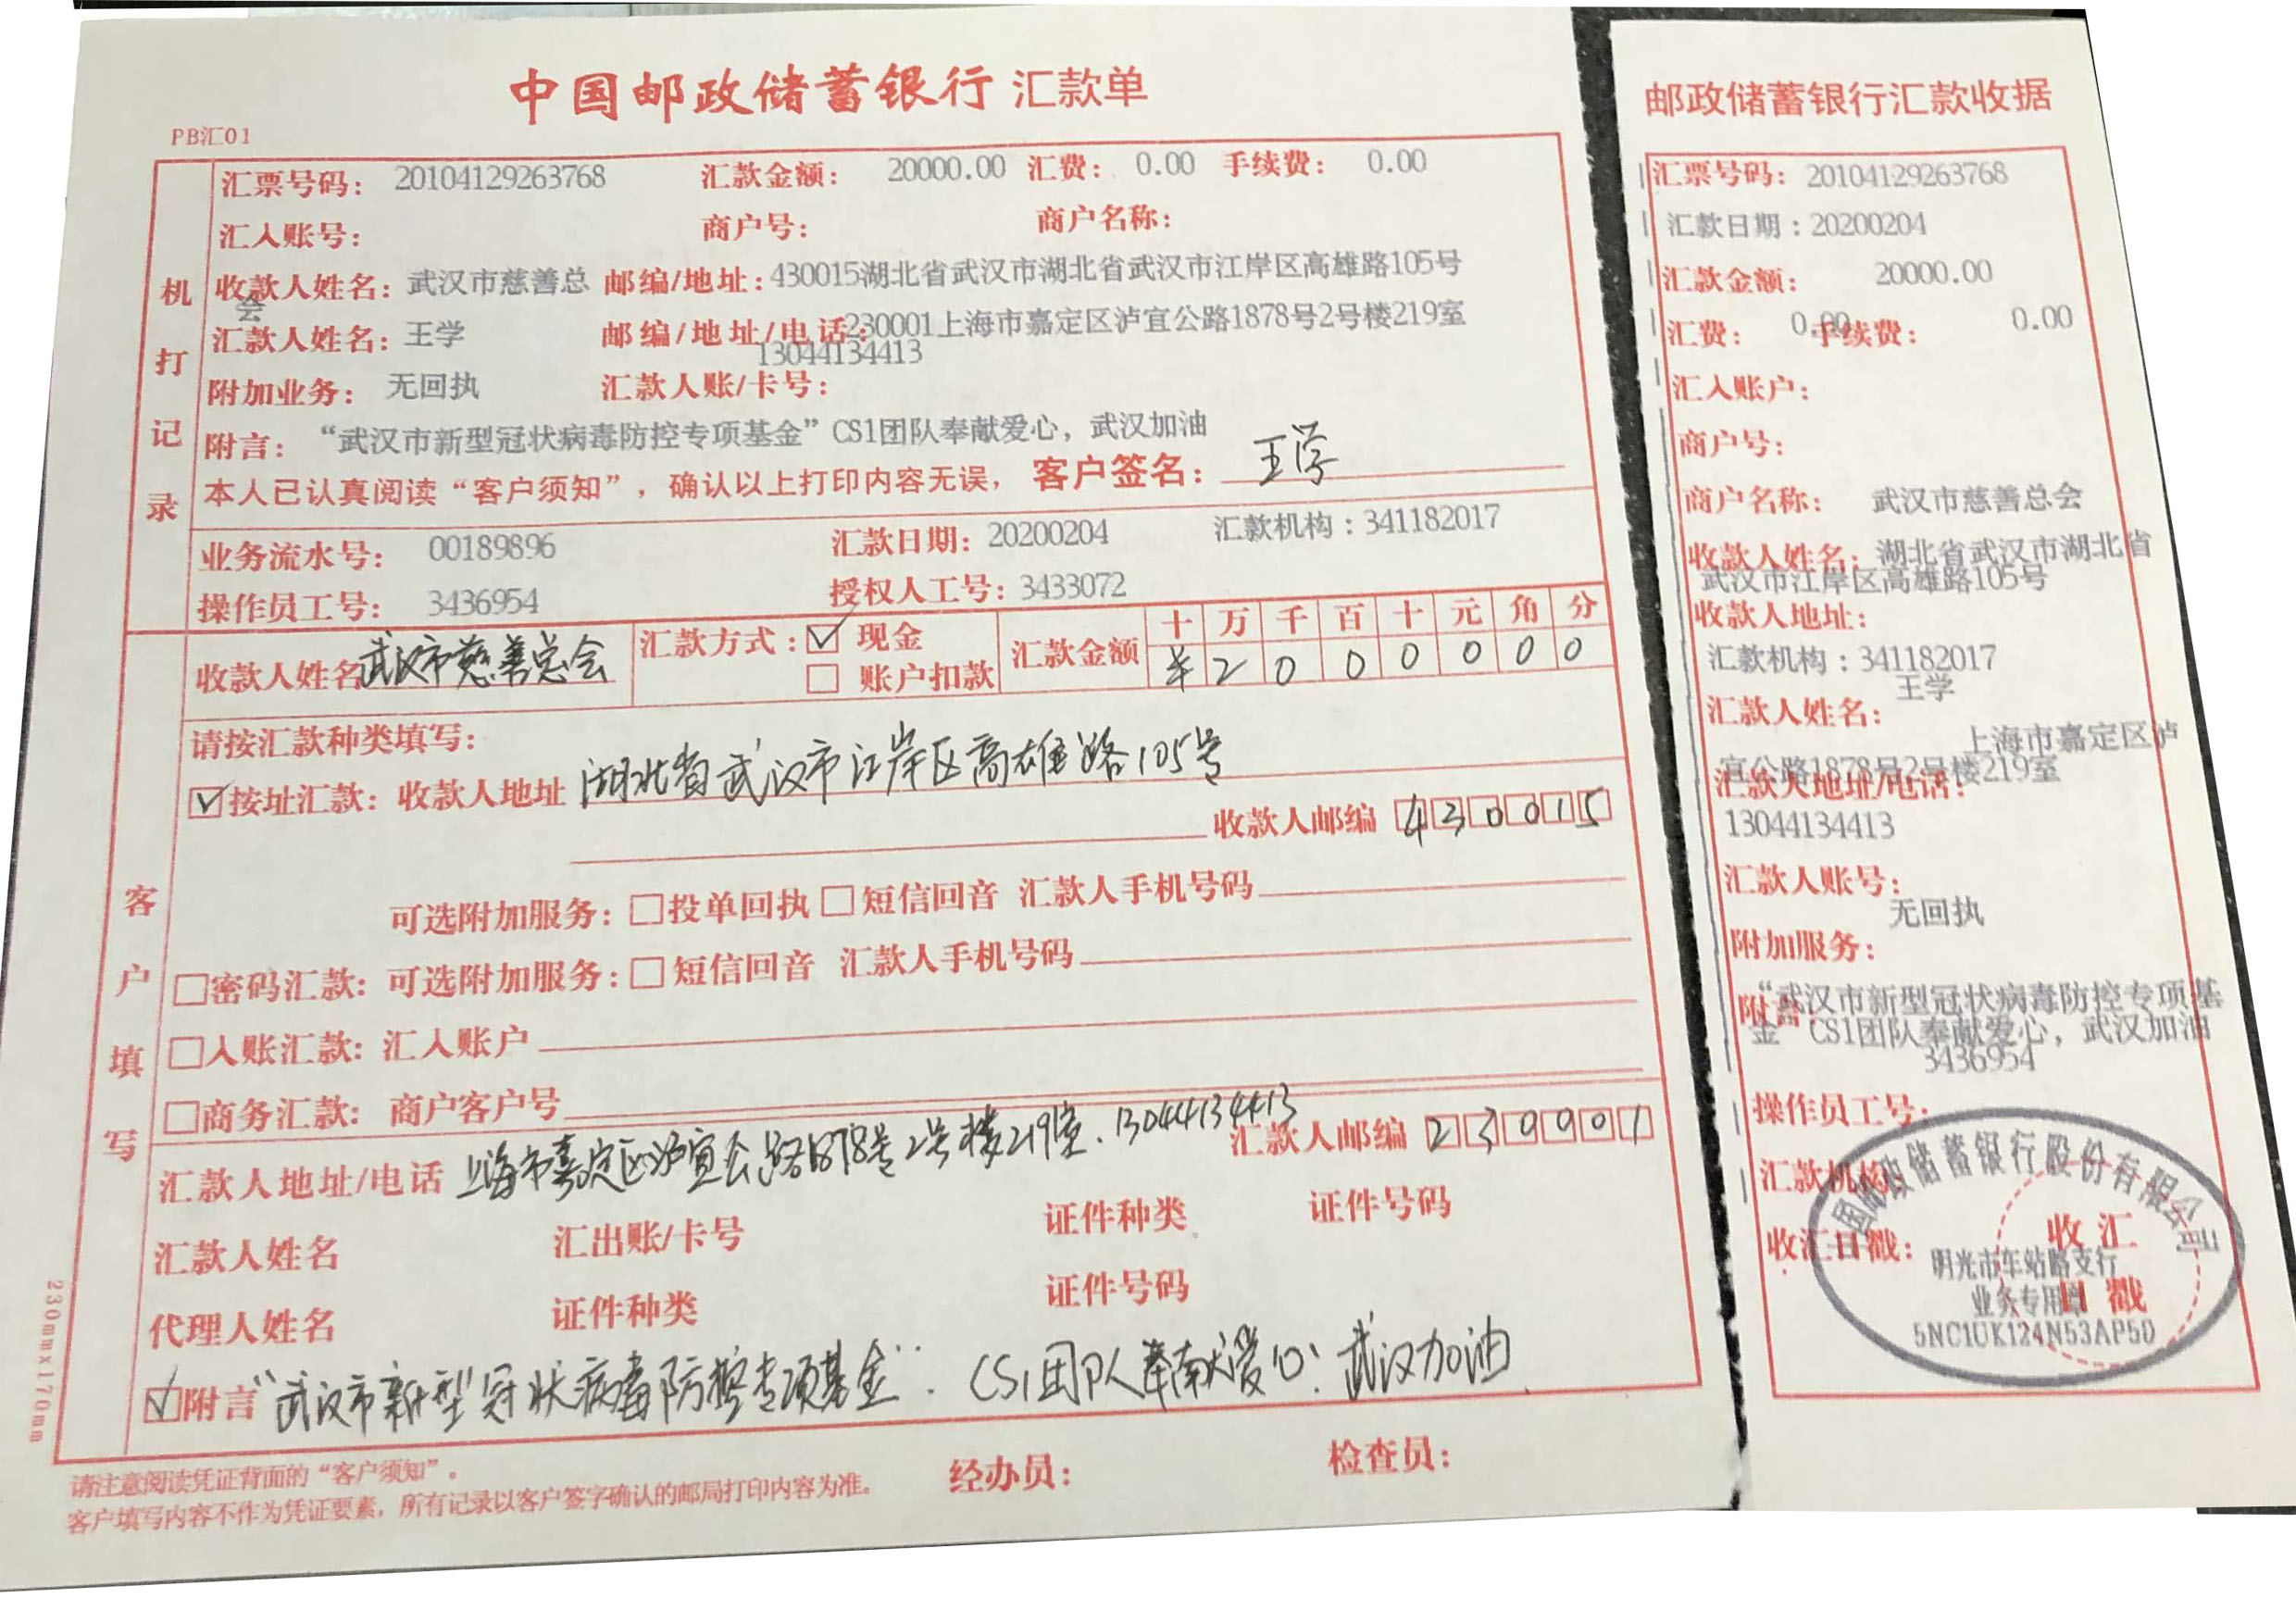 中国邮政储蓄银行 汇款单
PB汇01
机打记录
汇票号码： 20104129263768 汇款金额： 20000.00 汇费： 0.00 手续费： 0.00
汇入账号： 商户号： 商户名称：
收款人姓名： 武汉市慈善总会 邮编/地址：430015湖北省武汉市湖北省武汉市江岸区高雄路105号
汇款人姓名： 王学 邮编/地址/电话：230001上海市嘉定区泸宜公路1878号2号楼219室
13044134413
附加业务： 无回执 汇款人账/卡号：
附言： “武汉市新型冠状病毒防控专项基金”CS1团队奉献爱心，武汉加油
本人已认真阅读“客户须知”，确认以上打印内容无误，客户签名： 王学
业务流水号： 00189896 汇款日期：20200204 汇款机构：341182017
操作员工号： 3436954 授权人工号：3433072
客户填写
收款人姓名 武汉市慈善总会 汇款方式：☑ 现金 □ 账户扣款 汇款金额 十 万 千 百 十 元 角 分
¥ 2 0 0 0 0 0 0
请按汇款种类填写：
☑按址汇款：收款人地址 湖北省武汉市江岸区高雄路105号
收款人邮编 430015
可选附加服务：□投单回执 □短信回音 汇款人手机号码
□密码汇款：可选附加服务：□短信回音 汇款人手机号码
□入账汇款：汇入账户
□商务汇款：商户客户号
汇款人地址/电话 上海市嘉定区泸宜公路1878号2号楼219室. 13044134413 汇款人邮编 230001
汇款人姓名 汇出账/卡号 证件种类 证件号码
代理人姓名 证件种类 证件号码
☑附言“武汉市新型冠状病毒防控专项基金”. CS1团队奉献爱心. 武汉加油
请注意阅读凭证背面的“客户须知”。
客户填写内容不作为凭证要素，所有记录以客户签字确认的邮局打印内容为准。
经办员： 检查员：
230mm×170mm
邮政储蓄银行汇款收据
汇票号码：20104129263768
汇款日期：20200204
汇款金额： 20000.00
汇费： 0.00 手续费： 0.00
汇入账户：
商户号：
商户名称： 武汉市慈善总会
收款人姓名：湖北省武汉市湖北省
武汉市江岸区高雄路105号
收款人地址：
汇款机构：341182017
王学
汇款人姓名：
上海市嘉定区泸
宜公路1878号2号楼219室
汇款人地址/电话：
13044134413
汇款人账号：
无回执
附加服务：
附言：“武汉市新型冠状病毒防控专项基
金”CS1团队奉献爱心，武汉加油
3436954
操作员工号：
汇款机构：
收汇日戳：
国邮政储蓄银行股份有限公司
收汇
明光市车站路支行
业务专用章
日戳
5NC1UK124N53AP5D